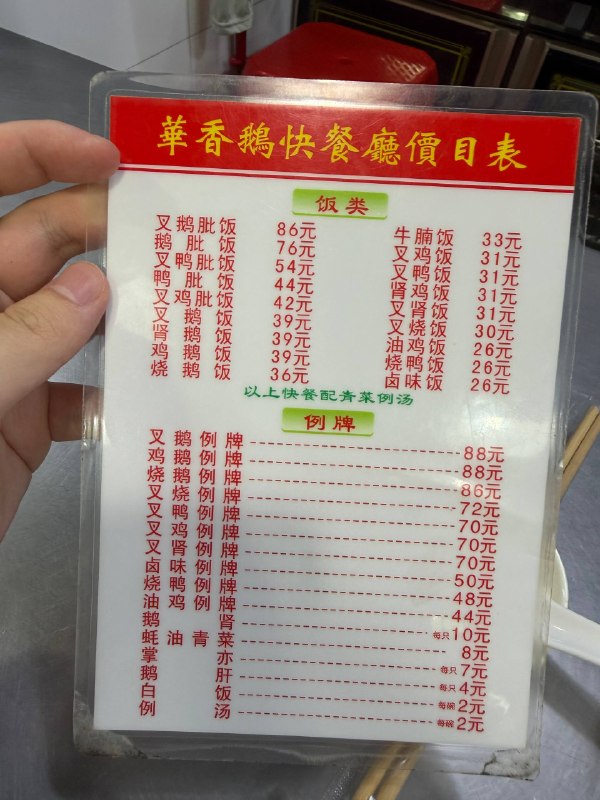 華香鵝快餐廳價目表
饭类
叉鹅肶饭 86元
鹅肶饭 76元
叉鸭肶饭 54元
鸭肶饭 44元
叉鸡肶饭 42元
叉鹅饭 39元
肾鹅饭 39元
鸡鹅饭 39元
烧鹅饭 36元
牛腩饭 33元
叉鸡饭 31元
叉鸭饭 31元
肾鸡饭 31元
叉肾饭 31元
叉烧饭 30元
油鸡饭 26元
烧鸭饭 26元
卤味饭 26元
以上快餐配青菜例汤
例牌
叉鹅例牌 88元
鸡鹅例牌 88元
烧鹅例牌 86元
叉烧例牌 72元
叉鸭例牌 70元
叉鸡例牌 70元
叉肾例牌 70元
卤味例牌 50元
烧鸭例牌 48元
油鸡例牌 44元
鹅肾 每只10元
蚝油青菜 8元
掌亦 每只7元
鹅肝 每只4元
白饭 每碗2元
例汤 每碗2元